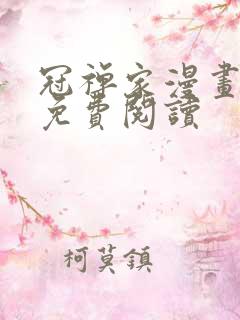 冠禅家漫畫
免費閱讀
柯莫鎮